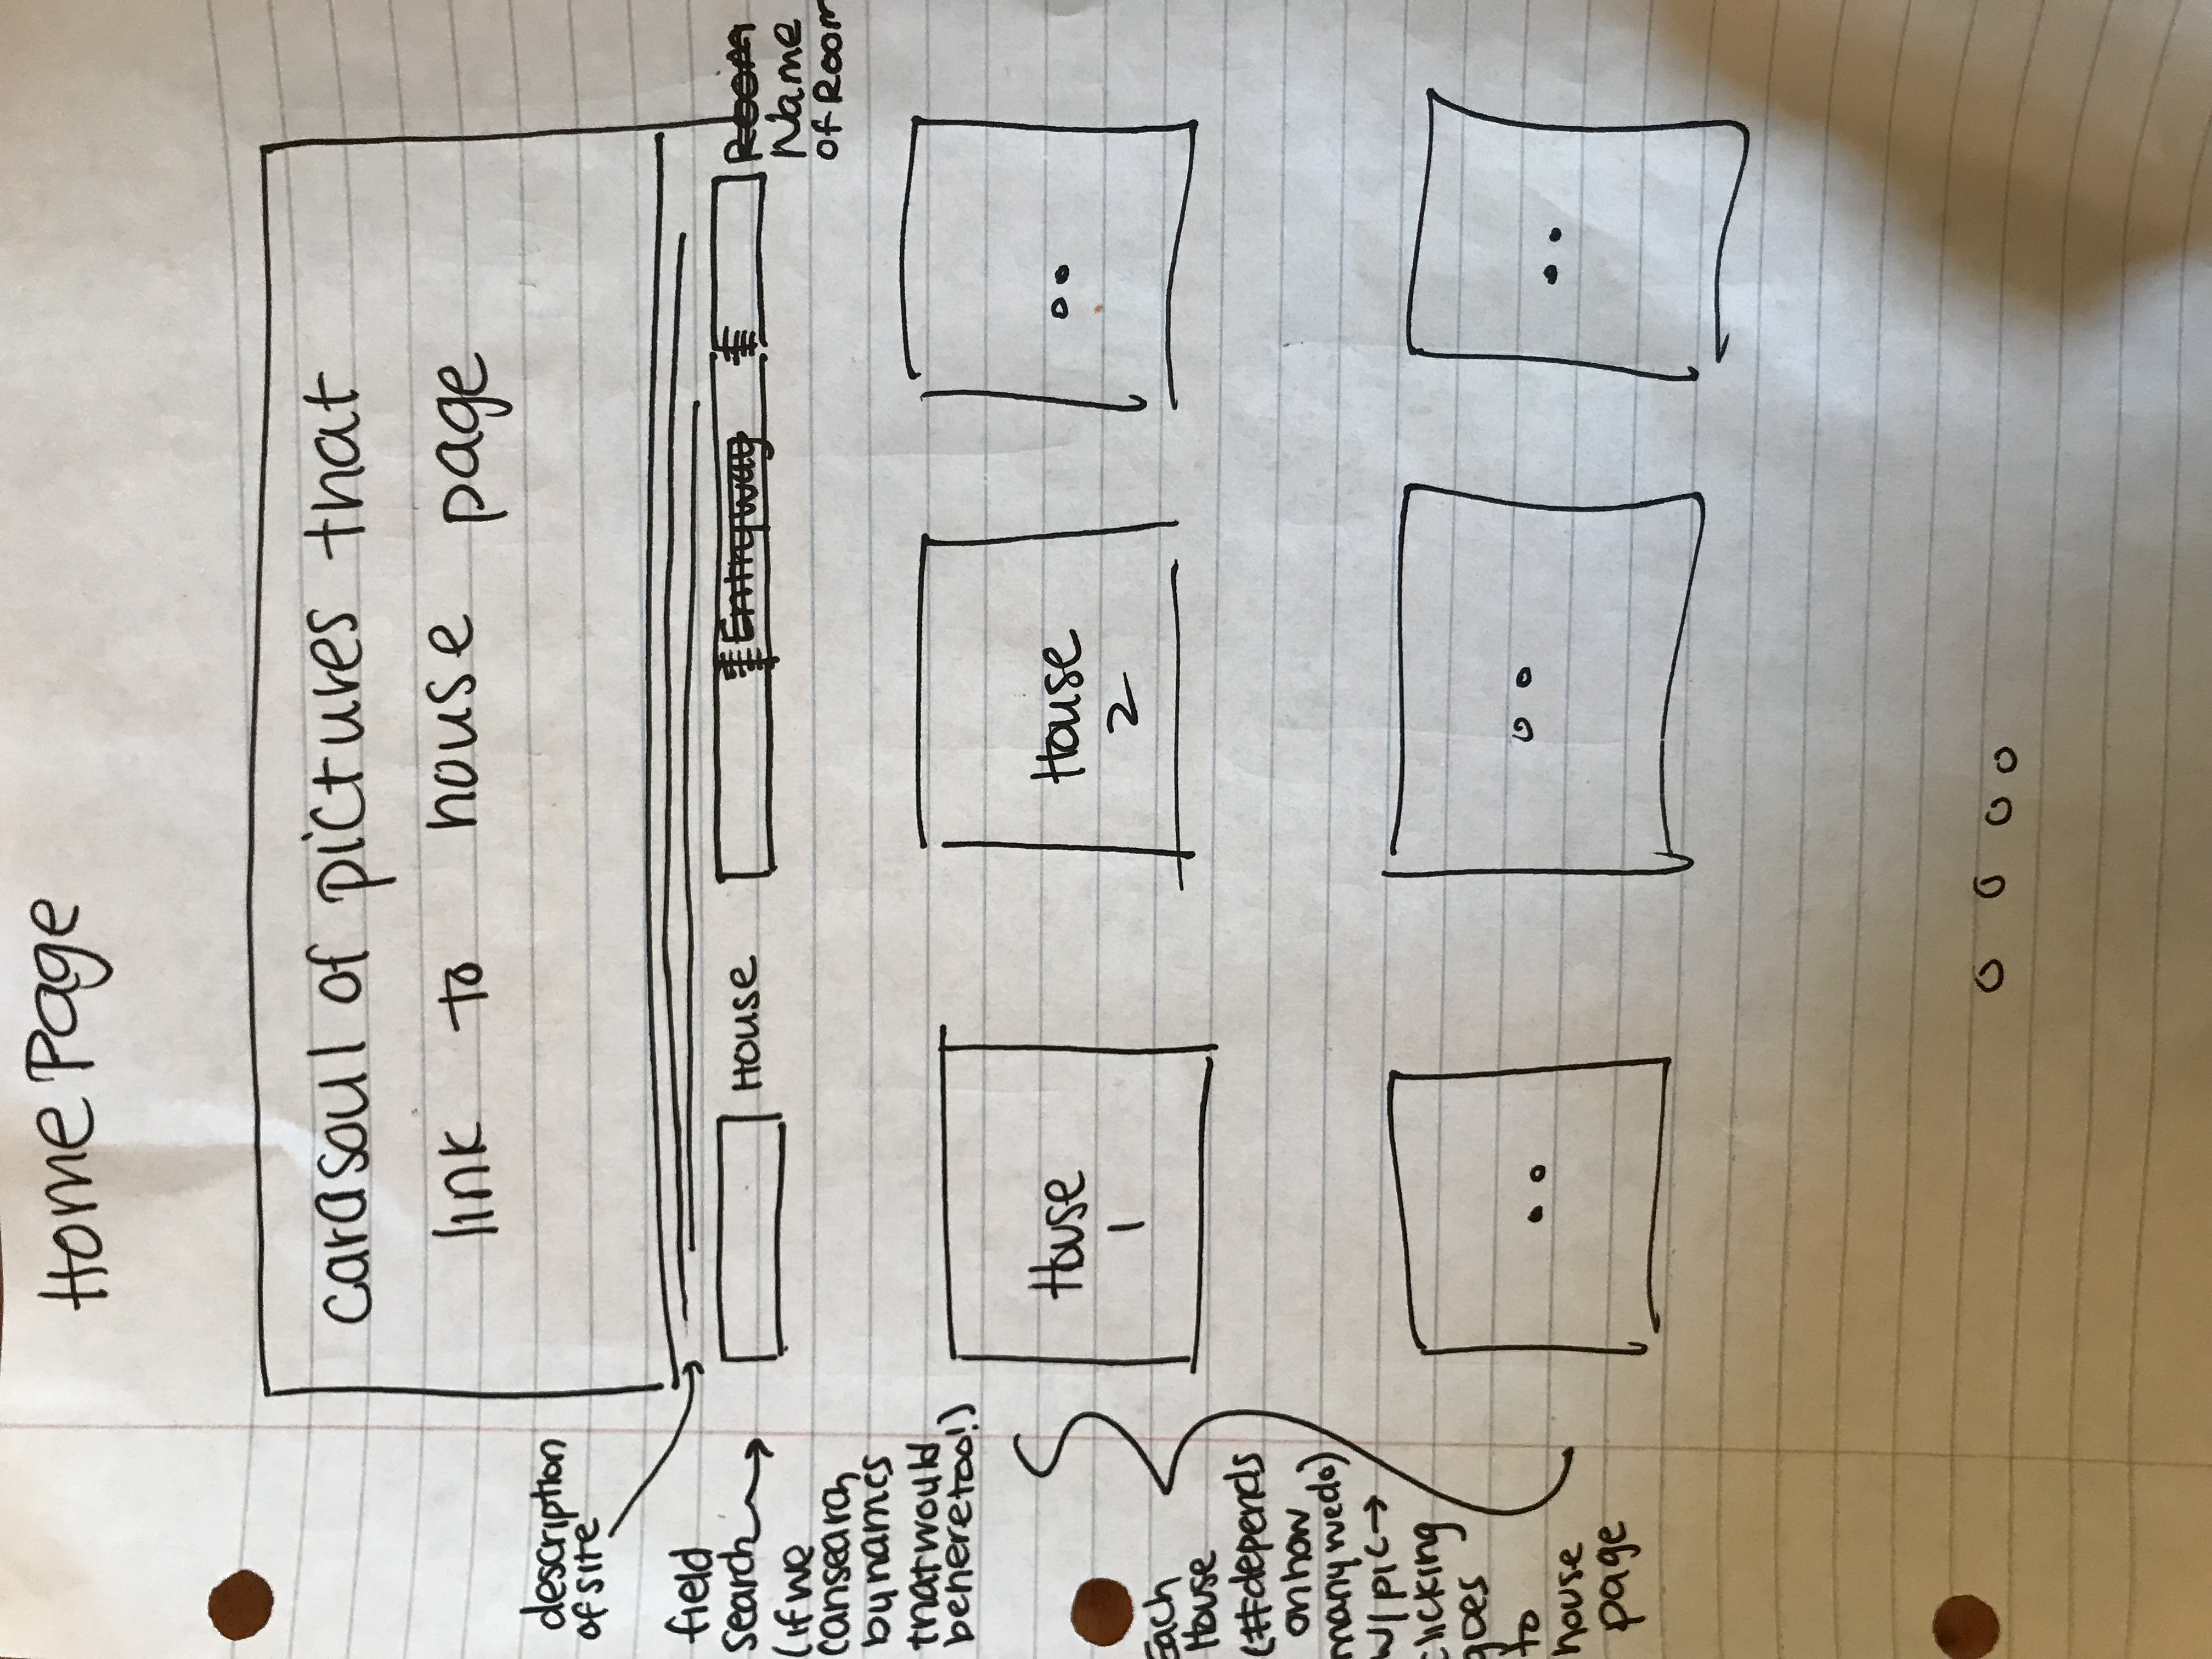 Home Page
carasoul of pictures that
link to house page
description
of site
field
search
(if we
can search
by names
that would
be here too!)
House
Entryway
Room
Name
of Room
House
1
House
2
Each
House
(# depends
on how
many we do)
w/ pic →
clicking
goes
to
house
page